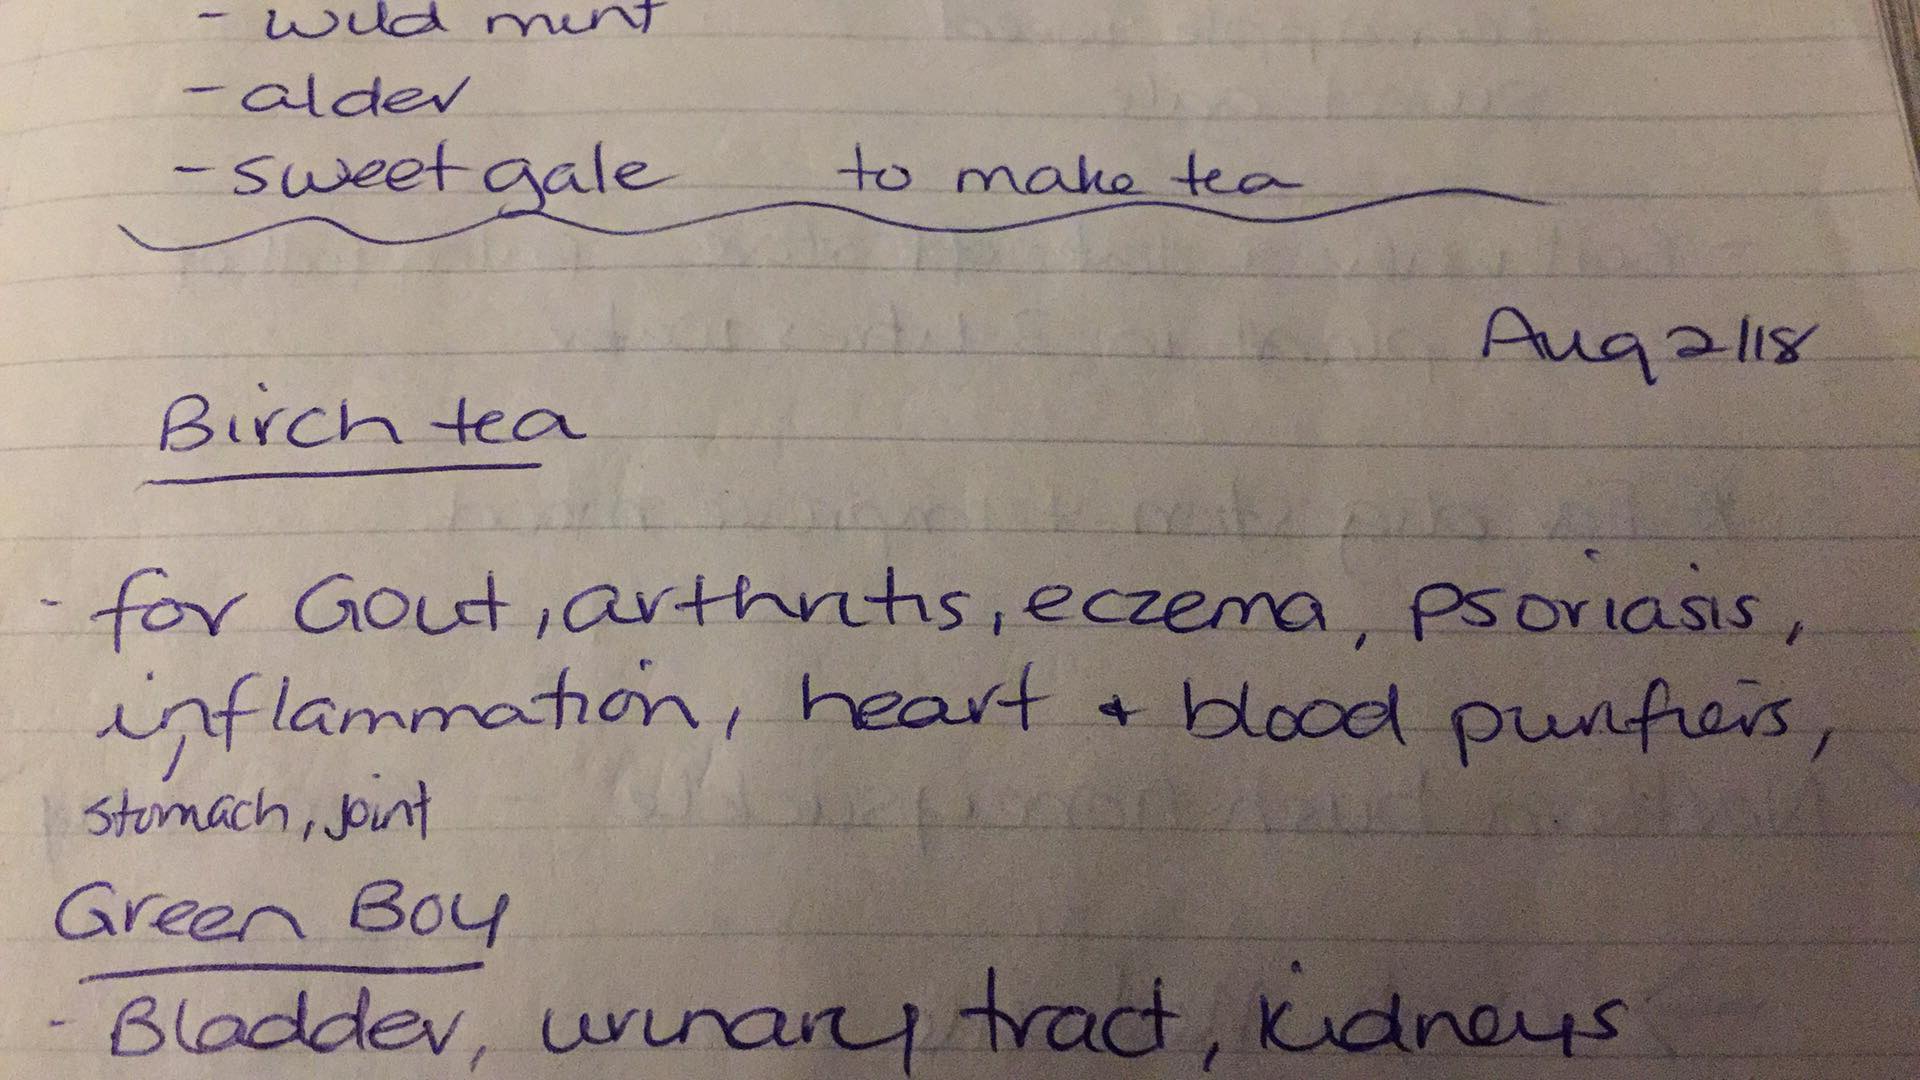 - wild mint
- alder
- sweet gale to make tea
Aug 2/18
Birch tea
- for Gout, arthritis, eczema, psoriasis,
inflammation, heart + blood purifiers,
stomach, joint
Green Boy
- Bladder, urinary tract, kidneys